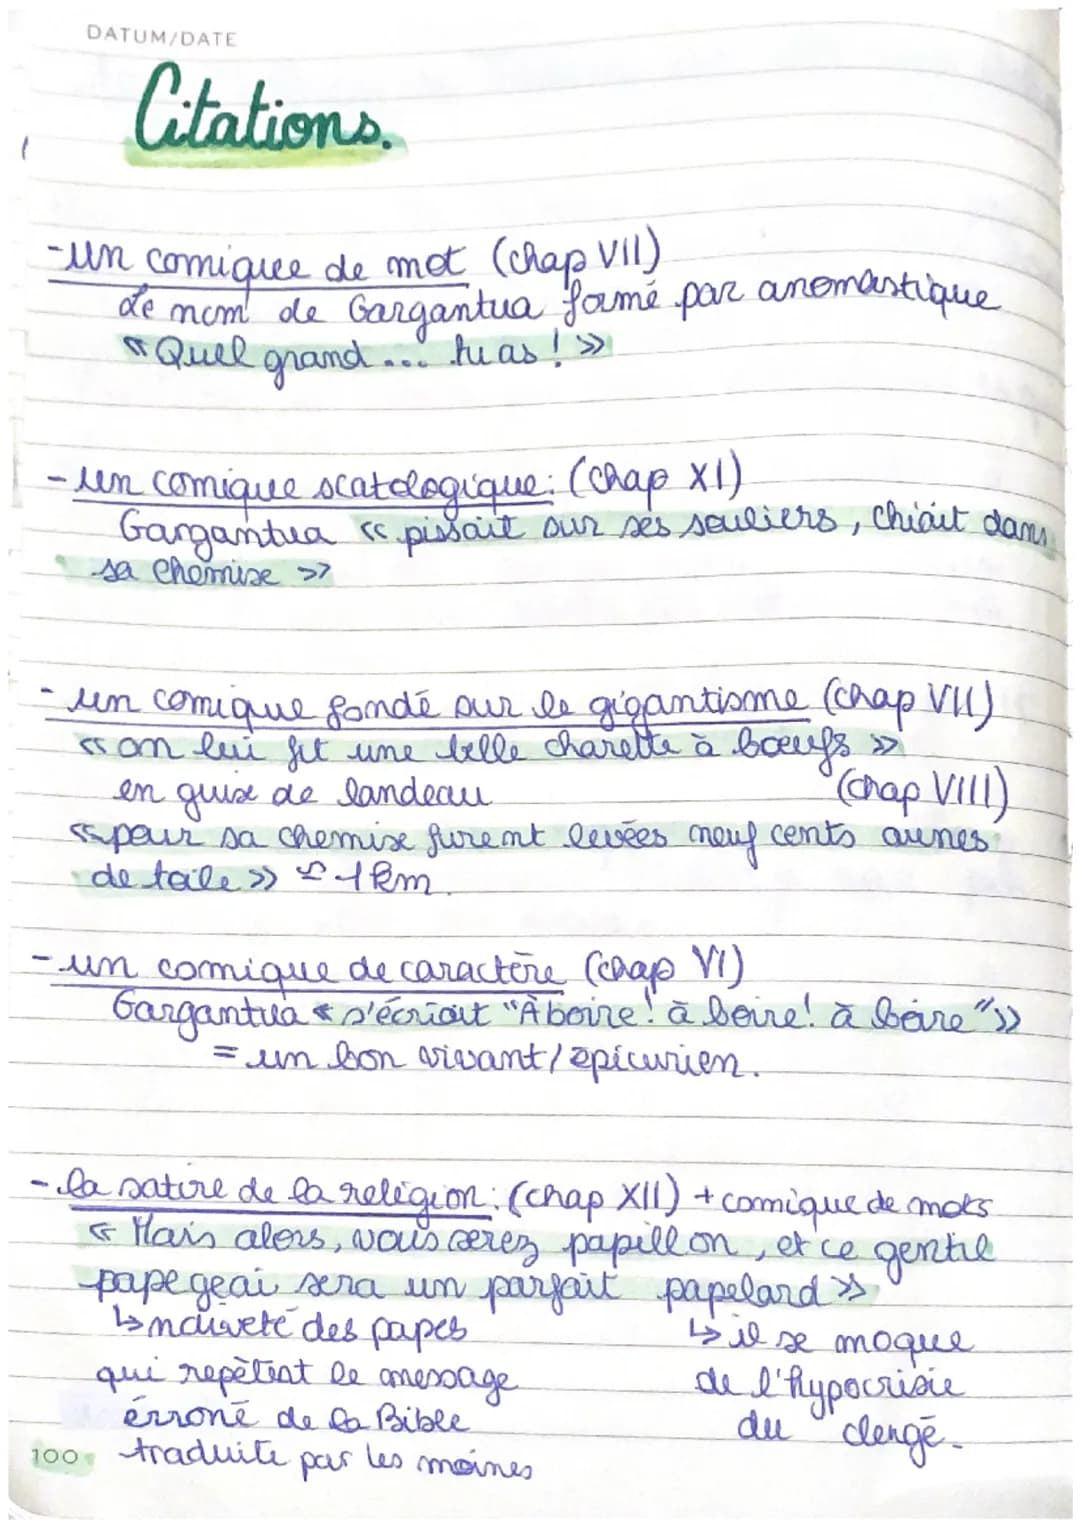 DATUM/DATE
Citations.
- un comiquee de mot (chap VII)
Le nom de Gargantua formé par anomastique
« Quel grand ... tu as ! »
- un comique scatologique : (chap XI)
Gargantua « pissait sur ses souliers, chiait dans
sa chemise »
- un comique fondé sur le gigantisme (chap VII)
« on lui fit une belle charette à bœufs »
en guise de landeau (chap VIII)
« pour sa chemise furent levées neuf cents aunes
de toile » ≃ 1km.
- un comique de caractère (chap VI)
Gargantua « s'écriait "À boire! à boire! à boire" »
= un bon vivant/épicurien.
- la satire de la religion : (chap XII) + comique de mots
« Mais alors, vous serez papillon, et ce gentil
papegeai sera un parfait papelard »
↳ naïveté des papes ↳ il se moque
qui repètent le message de l'hypocrisie
érroné de la Bible du clergé.
100 traduite par les moines